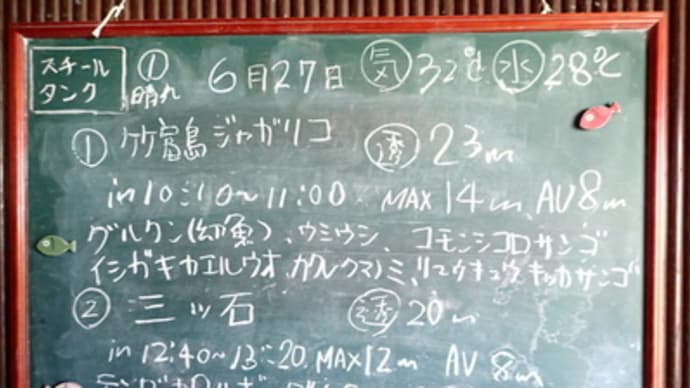 スチール ① 6月27日 ㊋気 32℃ ㊌ 28℃
タンク 晴れ
① 竹富島ジャガリコ 透 23m
in 10:10~11:00 MAX 14m、AV 8m
グルクン(幼魚)、ウミウシ、コモンシコロサンゴ
イシガキカエルウオ、カクレクマノミ、リュウキュウキッカサンゴ
② 三ッ石 透 20m
in 12:40~13:20. MAX 12m AV 8m